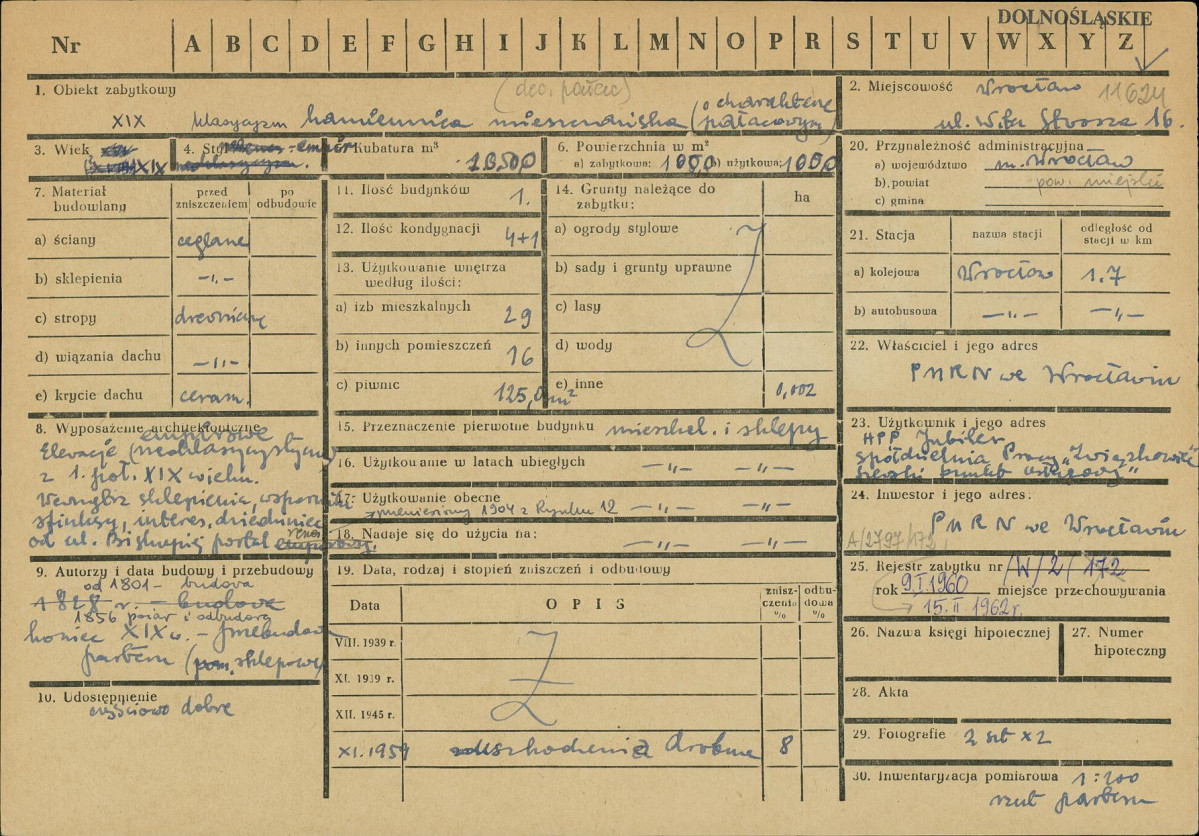 DOLNOŚLĄSKIE
Nr A B C D E F G H I J K L M N O P R S T U V W X Y Z
1. Obiekt zabytkowy
(dec. pałac)
XIX klasycyzm kamienica mieszczańska (o charakterze pałacowym)
2. Miejscowość Wrocław 11624
ul. Wita Stwosza 16.
3. Wiek XIX
4. Styl
5. Kubatura m³
10500
6. Powierzchnia w m²
a) zabytkowa: 1000 b) użytkowa: 1000
20. Przynależność administracyjna
a) województwo m. Wrocław
b) powiat pow. miejski
c) gmina
7. Materiał budowlany
przed zniszczeniem
po odbudowie
a) ściany ceglane
b) sklepienia —„—
c) stropy drewniane
d) wiązania dachu —„—
e) krycie dachu ceram.
11. Ilość budynków 1.
12. Ilość kondygnacji 4+1
13. Użytkowanie wnętrza według ilości:
a) izb mieszkalnych 29
b) innych pomieszczeń 16
c) piwnic 125,0 m²
14. Grunty należące do zabytku:
ha
a) ogrody stylowe
b) sady i grunty uprawne
c) lasy
d) wody
e) inne 0,002
21. Stacja
nazwa stacji
odległość od stacji w km
a) kolejowa Wrocław 1.7
b) autobusowa —„— —„—
22. Właściciel i jego adres
PMRN we Wrocławiu
8. Wyposażenie architektoniczne
empirowe
Elewacje (neoklasycystyczne
z 1. poł. XIX wieku.
Wewnątrz sklepienia, wsporniki
sfinksy, interes. dziedziniec
od ul. Biskupiej portal renes.
15. Przeznaczenie pierwotne budynku mieszkal. i sklepy
16. Użytkowanie w latach ubiegłych —„— —„—
17. Użytkowanie obecne —„— —„—
zmieniony 1904 z Rynku 12
18. Nadaje się do użycia na: —„— —„—
23. Użytkownik i jego adres
HPP Jubiler
Spółdzielnia Pracy „Związkowiec”
punkt usługowy”
24. Inwestor i jego adres:
PMRN we Wrocławiu
A/2797/172
25. Rejestr zabytku nr /W/2/172
rok 9.I.1960 miejsce przechowywania
15.II 1962 r.
9. Autorzy i data budowy i przebudowy
od 1801 - budowa
1828 r. - budowa
1856 pożar i odbudowa
koniec XIX w. - przebudowa
parteru (pom. sklepowe)
10. Udostępnienie
częściowo dobre
19. Data, rodzaj i stopień zniszczeń i odbudowy
Data
OPIS
zniszczenia %
odbudowa %
VIII. 1939 r.
XI. 1939 r.
XII. 1945 r.
XI. 1959 uszkodzenia drobne 8
26. Nazwa księgi hipotecznej
27. Numer hipoteczny
28. Akta
29. Fotografie 2 szt x 2
30. Inwentaryzacja pomiarowa 1:200
rzut parteru